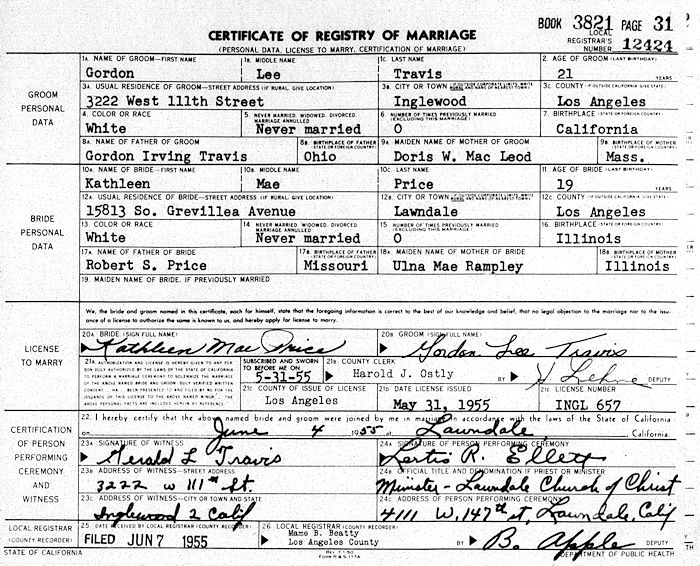 BOOK 3821 PAGE 31
CERTIFICATE OF REGISTRY OF MARRIAGE
LOCAL REGISTRAR'S NUMBER 12424
(PERSONAL DATA, LICENSE TO MARRY, CERTIFICATION OF MARRIAGE)
GROOM PERSONAL DATA
1A. NAME OF GROOM—FIRST NAME 1B. MIDDLE NAME 1C. LAST NAME 2. AGE OF GROOM (LAST BIRTHDAY)
Gordon Lee Travis 21 YEARS
3A. USUAL RESIDENCE OF GROOM—STREET ADDRESS (IF RURAL, GIVE LOCATION) 3B. CITY OR TOWN (IF OUTSIDE CORPORATE LIMITS, WRITE RURAL AND NAME OF NEAREST CITY) 3C. COUNTY (IF OUTSIDE CALIFORNIA GIVE STATE)
3222 West 111th Street Inglewood Los Angeles
4. COLOR OR RACE 5. NEVER MARRIED, WIDOWED, DIVORCED, MARRIAGE ANNULLED 6. NUMBER OF TIMES PREVIOUSLY MARRIED (EXCLUDING THIS MARRIAGE) 7. BIRTHPLACE (STATE OR FOREIGN COUNTRY)
White Never married 0 California
8A. NAME OF FATHER OF GROOM 8B. BIRTHPLACE OF FATHER (STATE OR FOREIGN COUNTRY) 9A. MAIDEN NAME OF MOTHER OF GROOM 9B. BIRTHPLACE OF MOTHER (STATE OR FOREIGN COUNTRY)
Gordon Irving Travis Ohio Doris W. Mac Leod Mass.
BRIDE PERSONAL DATA
10A. NAME OF BRIDE—FIRST NAME 10B. MIDDLE NAME 10C. LAST NAME 11. AGE OF BRIDE (LAST BIRTHDAY)
Kathleen Mae Price 19 YEARS
12A. USUAL RESIDENCE OF BRIDE—STREET ADDRESS (IF RURAL, GIVE LOCATION) 12B. CITY OR TOWN (IF OUTSIDE CORPORATE LIMITS, WRITE RURAL AND NAME OF NEAREST CITY) 12C. COUNTY (IF OUTSIDE CALIFORNIA GIVE STATE)
15813 So. Grevillea Avenue Lawndale Los Angeles
13. COLOR OR RACE 14. NEVER MARRIED, WIDOWED, DIVORCED, MARRIAGE ANNULLED 15. NUMBER OF TIMES PREVIOUSLY MARRIED (EXCLUDING THIS MARRIAGE) 16. BIRTHPLACE (STATE OR FOREIGN COUNTRY)
White Never married 0 Illinois
17A. NAME OF FATHER OF BRIDE 17B. BIRTHPLACE OF FATHER (STATE OR FOREIGN COUNTRY) 18A. MAIDEN NAME OF MOTHER OF BRIDE 18B. BIRTHPLACE OF MOTHER (STATE OR FOREIGN COUNTRY)
Robert S. Price Missouri Ulna Mae Rampley Illinois
19. MAIDEN NAME OF BRIDE, IF PREVIOUSLY MARRIED
LICENSE TO MARRY
We, the bride and groom named in this certificate, each for himself, state that the foregoing information is correct to the best of our knowledge and belief, that no legal objection to the marriage nor to the issu-
ance of a license to authorize the same is known to us, and hereby apply for license to marry.
20A. BRIDE (SIGN FULL NAME) 20B. GROOM (SIGN FULL NAME)
Kathleen Mae Price Gordon Lee Travis
21A. AUTHORIZATION AND LICENSE IS HEREBY GIVEN TO ANY PERSON DULY AUTHORIZED BY THE LAWS OF THE STATE OF CALIFORNIA TO PERFORM A MARRIAGE CEREMONY TO SOLEMNIZE THE MARRIAGE OF THE ABOVE NAMED BRIDE AND GROOM
SUBSCRIBED AND SWORN TO BEFORE ME ON 5-31-55
21B. COUNTY CLERK
Harold J. Ostly DEPUTY
21C. COUNTY OF ISSUE OF LICENSE 21D. DATE LICENSE ISSUED 21E. LICENSE NUMBER
Los Angeles May 31, 1955 INGL 657
CERTIFICATION OF PERSON PERFORMING CEREMONY AND WITNESS
22. I hereby certify that the above named bride and groom were joined by me in marriage in accordance with the laws of the State of California
on June 4 1955 at Lawndale California.
23A. SIGNATURE OF WITNESS 24A. SIGNATURE OF PERSON PERFORMING CEREMONY
Gerald L Travis Lertis R. Ellett
23B. ADDRESS OF WITNESS—STREET ADDRESS 24B. OFFICIAL TITLE AND DENOMINATION IF PRIEST OR MINISTER
3222 W 111th St. Minister - Lawndale Church of Christ
23C. ADDRESS OF WITNESS—CITY OR TOWN AND STATE 24C. ADDRESS OF PERSON PERFORMING CEREMONY
Inglewood 2 Calif 4111 W. 147th St, Lawndale, Calif
LOCAL REGISTRAR (COUNTY RECORDER)
25. DATE RECEIVED BY LOCAL REGISTRAR (COUNTY RECORDER) 26. LOCAL REGISTRAR (COUNTY RECORDER)
FILED JUN 7 1955 Mame B. Beatty
Los Angeles County B. Apple DEPUTY
STATE OF CALIFORNIA Rev. 7-1-50 DEPARTMENT OF PUBLIC HEALTH